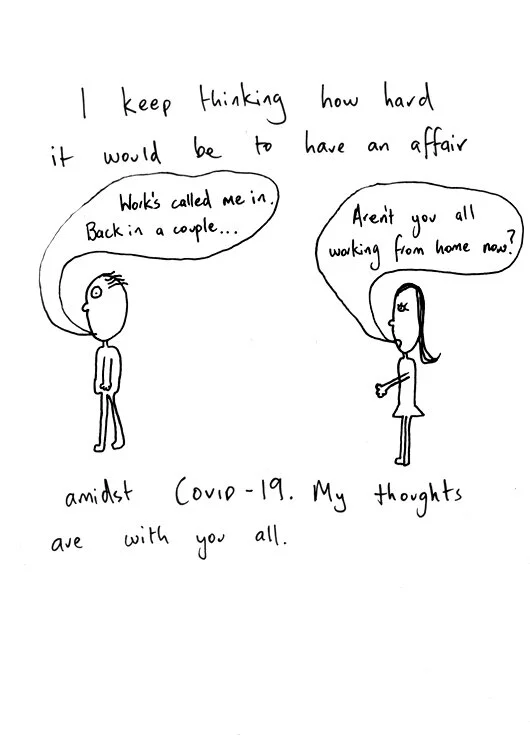 I keep thinking how hard
it would be to have an affair
Work's called me in.
Back in a couple...
Aren't you all
working from home now?
amidst Covid-19. My thoughts
are with you all.